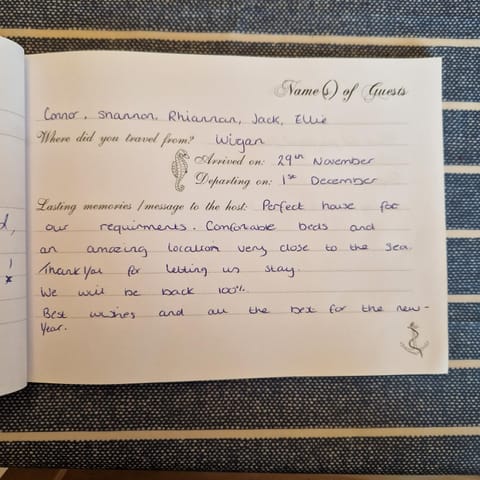 Name(s) of Guests
Connor, Shannon, Rhiannan, Jack, Ellie
Where did you travel from? Wigan
Arrived on: 29th November
Departing on: 1st December
Lasting memories / message to the host: Perfect house for
our requirments. Comfortable beds and
an amazing location very close to the sea.
Thank you for letting us stay.
We will be back 100%.
Best wishes and all the best for the new-
Year.
d,